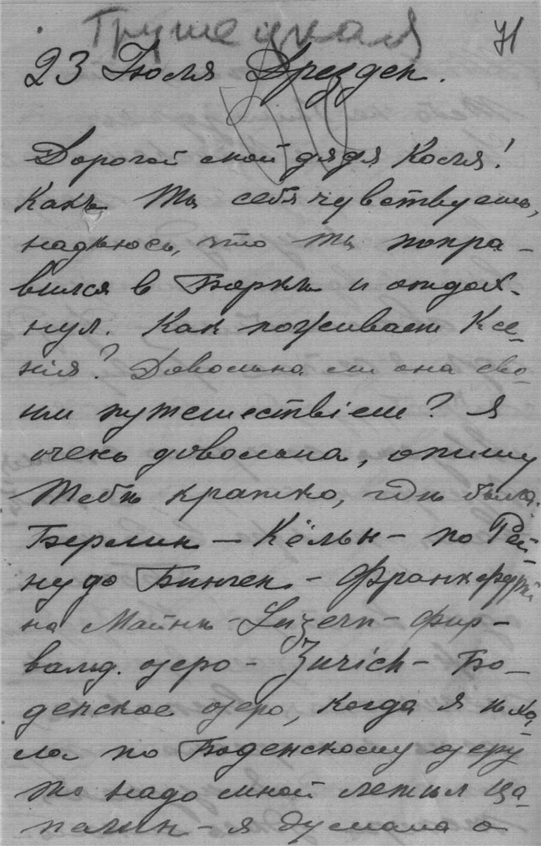 Трушецкая
71
23 Июля Дрезден.
Дорогой мой дядя Коля!
Какъ Ты себя чувствуешь,
надѣюсь, что ты попра-
вился в Боркѣ и отдох-
нул. Как поживает Ксе-
нія? Довольна ли она сво-
им путешествіем? Я
очень довольна, опишу
Тебѣ кратко, гдѣ была.
Берлин – Кёльн – по Рей
ну до Бинген – Франкфурт
на Майнѣ – Luzern – Фир-
вальд. озеро – Zurich – Бо-
денское озеро, когда я ѣха
ла по Боденскому озеру
то надо мной летѣл Цѣ-
пелин – я думала о